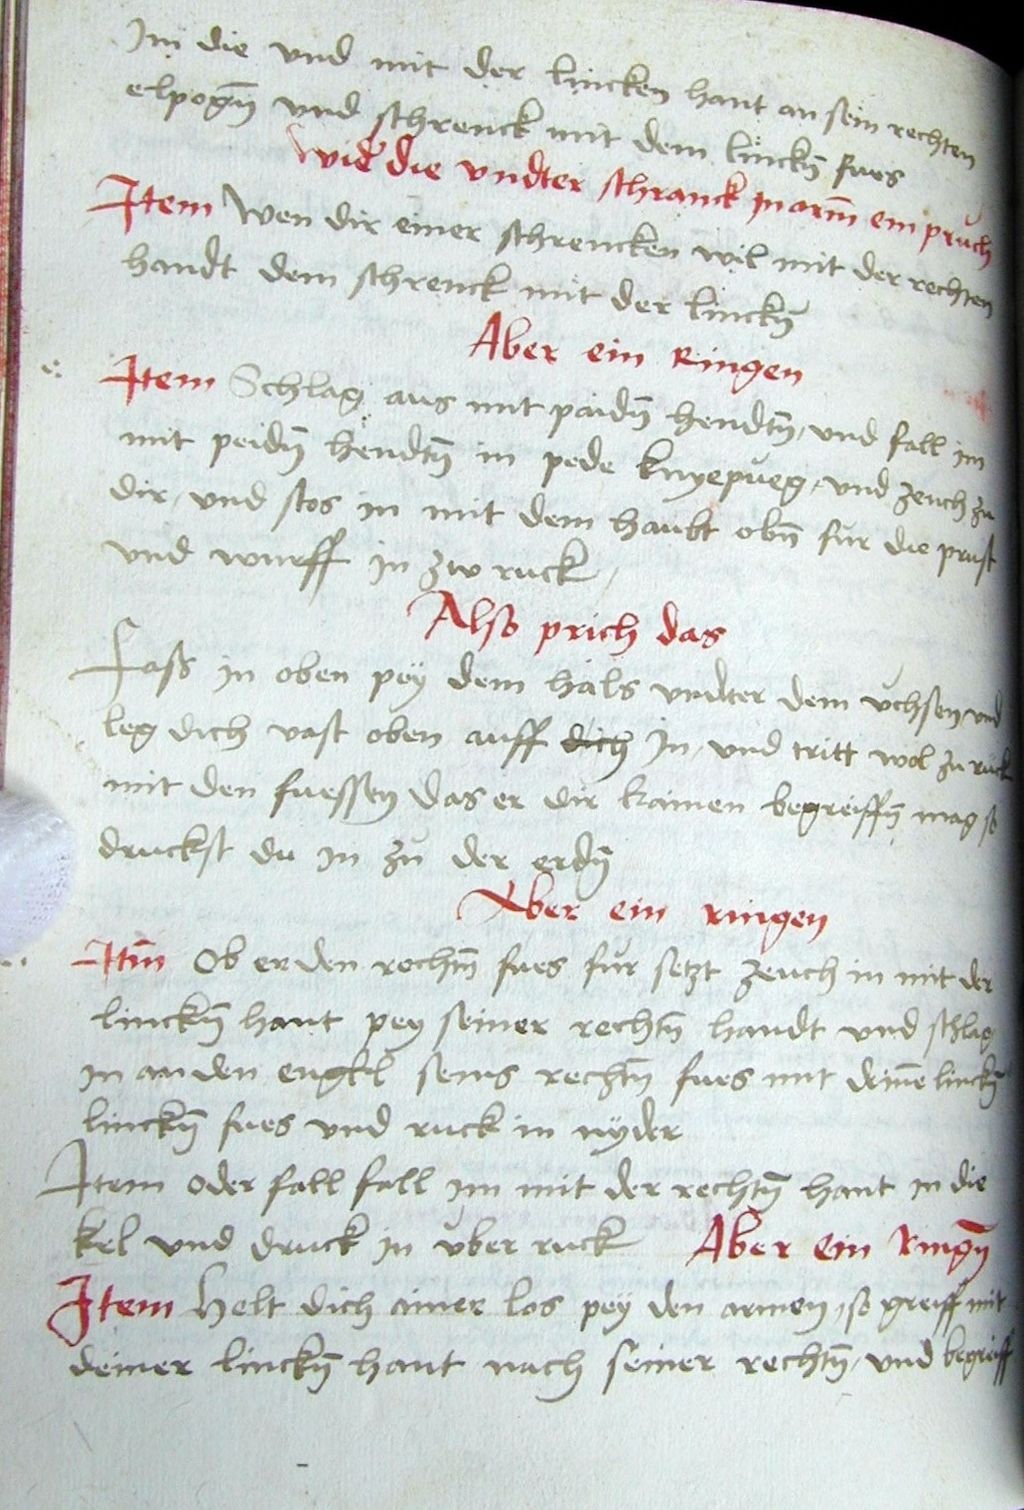 Im die und mit der lincken hant an sein rechten
elpogn̄ und schrenck mit dem linckn̄ fues
wider die vndter schranck in arm̄ ein pruch
Item Wen dir einer schrencken wil mit der rechten
handt dem schrenck mit der linckn̄
Aber ein Ringen
Item Schlag aus mit paidn̄ hendtn̄, und fall im
mit peidn̄ hendtn̄ in pede knyepueg, und zeuch zu
dir, und stos in mit dem haubt obn̄ fur die prust
und wurff in zw ruck
Also prich das
Fass in oben pey dem hals vndter dem vchsen und
leg dich vast oben auff dich In, und tritt wol zu ruck
mit den fuessen das er dir kainen begreiffn̄ mag so
druckst du in zu der erdn̄
Aber ein ringen
Itm̄ Ob er den rechtn̄ fues fur setzt zeuch in mit der
linckn̄ hant pey seiner rechtn̄ handt und schlag
in an den engkl seins rechtn̄ fues mit deinē linckn̄
linckn̄ fues und ruck in nyder
Item oder fall fall im mit der rechtn̄ hant in die
kel und druck in vber ruck Aber ein Ringn̄
Item Helt dich ainer los pey den armen, so greiff mit
deiner linckn̄ hant nach seiner rechtn̄, und begreiff